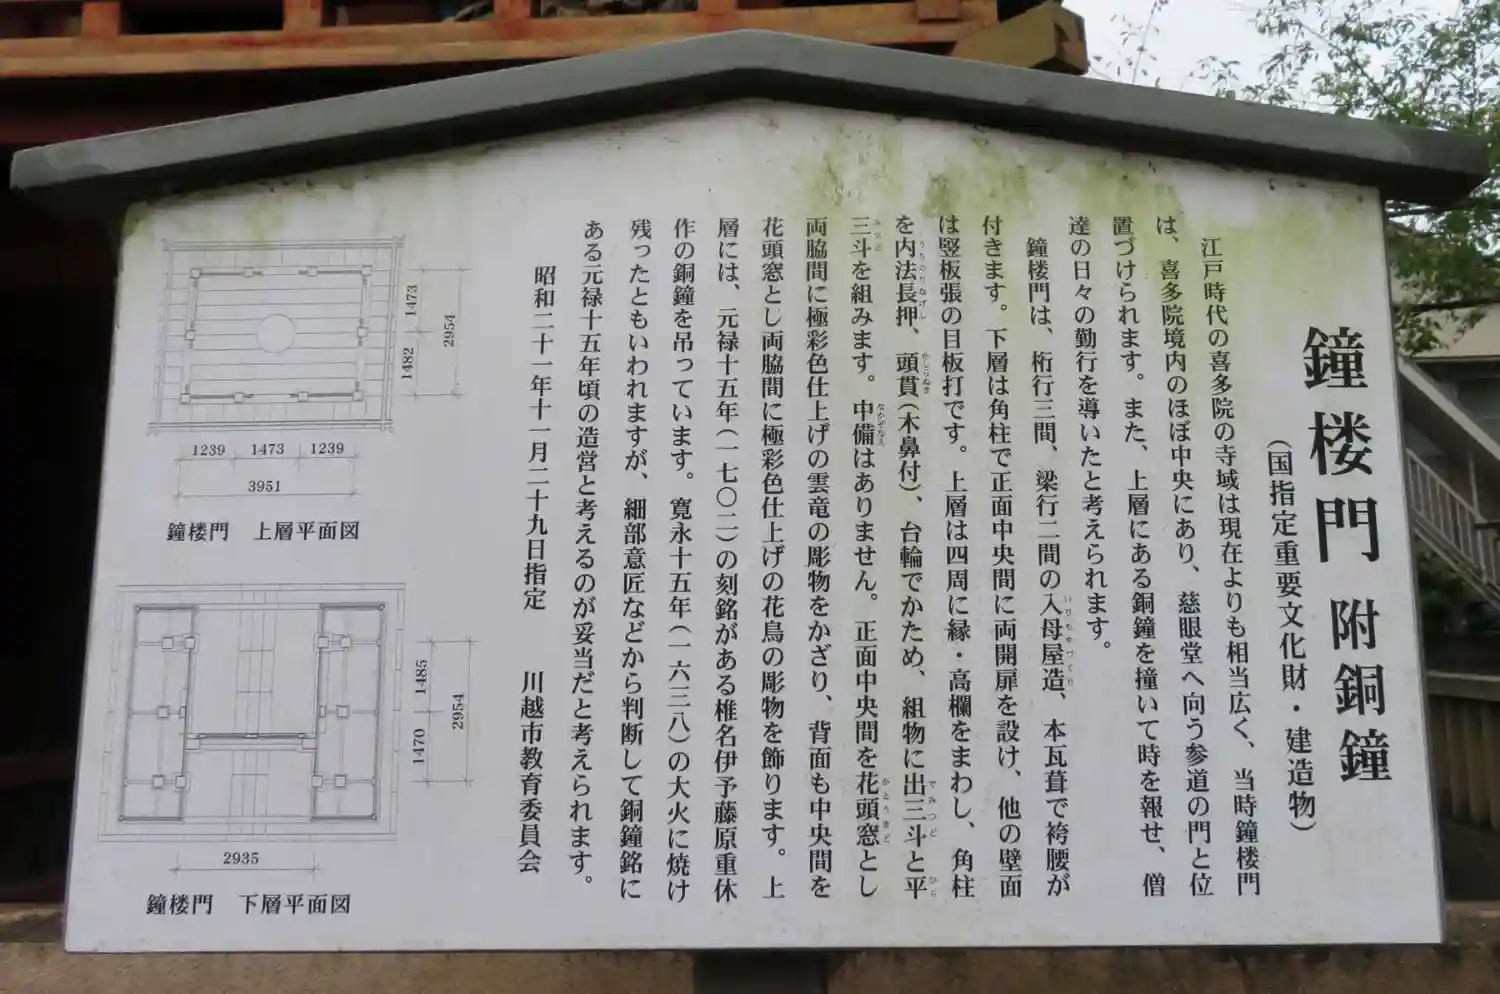 鐘楼門 附銅鐘
（国指定重要文化財・建造物）
江戸時代の喜多院の寺域は現在よりも相当広く、当時鐘楼門
は、喜多院境内のほぼ中央にあり、慈眼堂へ向う参道の門と位
置づけられます。また、上層にある銅鐘を撞いて時を報せ、僧
達の日々の勤行を導いたと考えられます。
鐘楼門は、桁行三間、梁行二間の入母屋造、本瓦葺で袴腰が
付きます。下層は角柱で正面中央間に両開扉を設け、他の壁面
は竪板張の目板打です。上層は四周に縁・高欄をまわし、角柱
を内法長押、頭貫（木鼻付）、台輪でかため、組物に出三斗と平
三斗を組みます。中備はありません。正面中央間を花頭窓とし
両脇間に極彩色仕上げの雲竜の彫物をかざり、背面も中央間を
花頭窓とし両脇間に極彩色仕上げの花鳥の彫物を飾ります。上
層には、元禄十五年（一七〇二）の刻銘がある椎名伊予藤原重休
作の銅鐘を吊っています。寛永十五年（一六三八）の大火に焼け
残ったともいわれますが、細部意匠などから判断して銅鐘銘に
ある元禄十五年頃の造営と考えるのが妥当だと考えられます。
昭和二十一年十一月二十九日指定 川越市教育委員会
1473
1482
2954
1239 1473 1239
3951
鐘楼門 上層平面図
1485
1470
2954
2935
鐘楼門 下層平面図